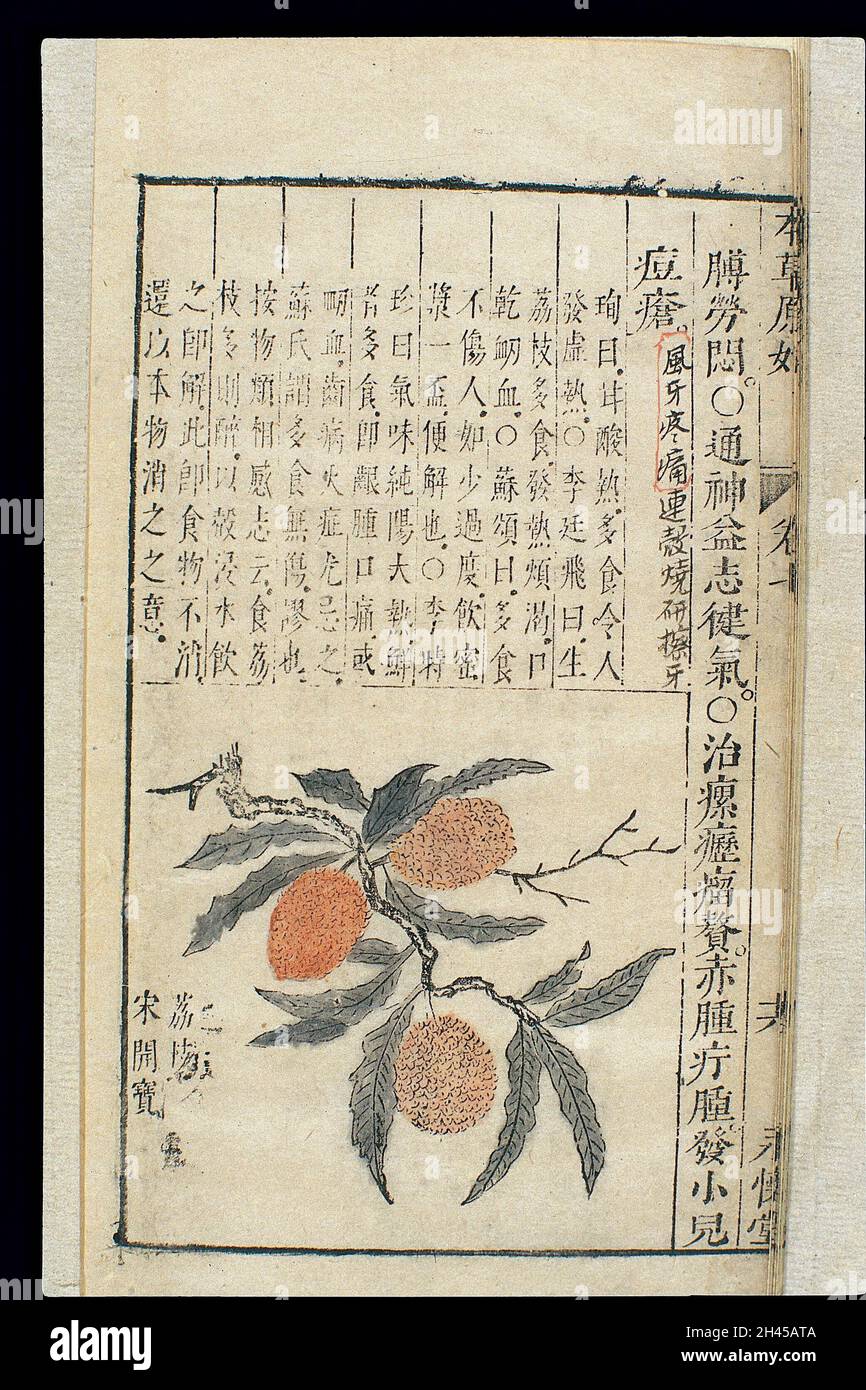 本草原始
卷十
永懷堂
膊勞悶。○通神益志健氣。○治瘰癧瘤贅。赤腫疔腫。發小兒
痘瘡。風牙疼痛連殼燒研擦牙
珣曰。甘酸熱。多食令人
發虛熱。○李廷飛曰。生
荔枝多食。發熱煩渴。口
乾衄血。○蘇頌曰。多食
不傷人。如少過度。飲蜜
漿一盃。便解也。○李時
珍曰。氣味純陽大熱。鮮
者多食。即齦腫口痛。或
衄血。齒病火症尤忌之。
蘇氏謂多食無傷。謬也。
按物類相感志云。食荔
枝多則醉。以殼浸水飲
之即解。此即食物不消。
還以本物消之之意。
荔枝
宋開寶
alamy
alamy
Image ID: 2H45ATA
www.alamy.com